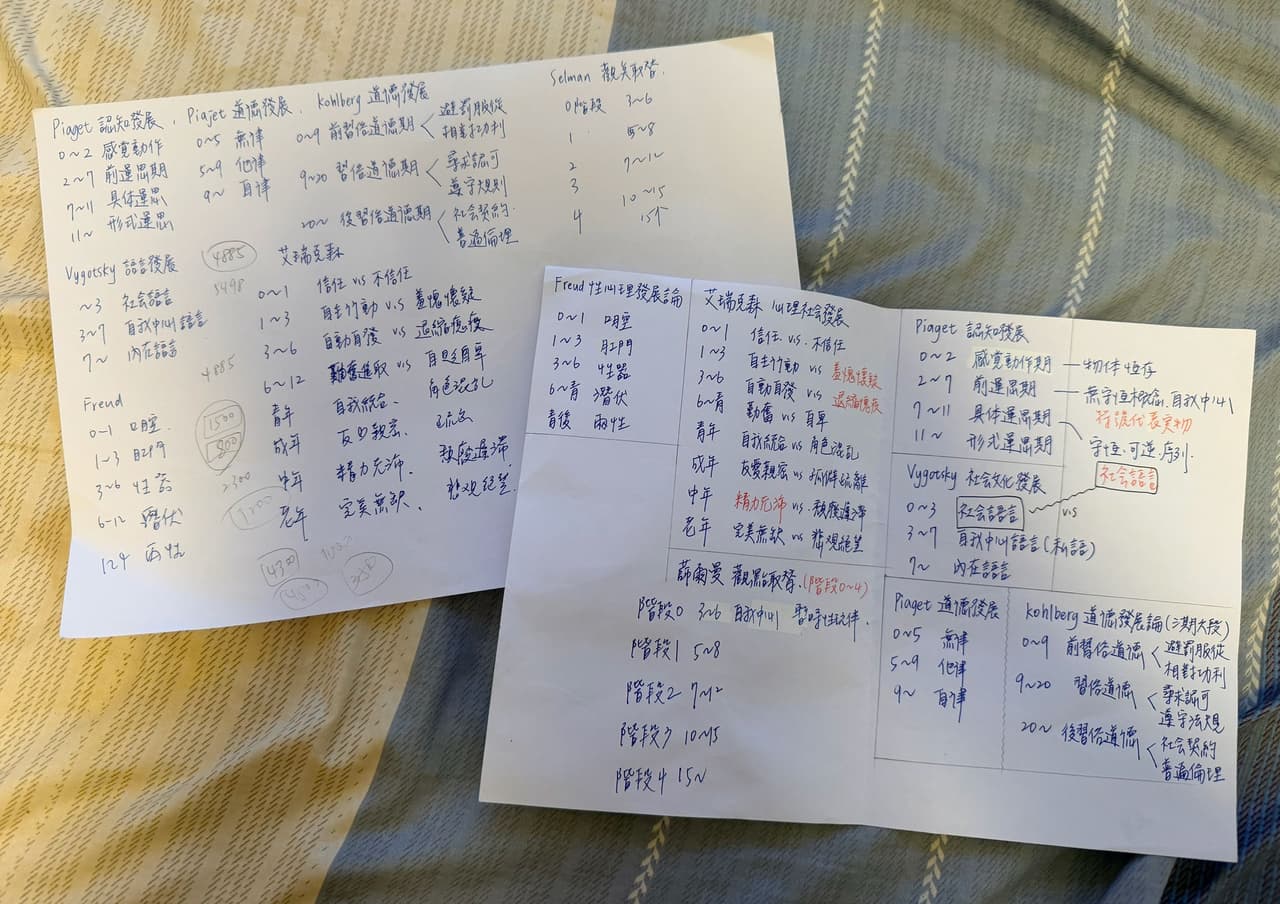 Piaget 認知發展、Piajet 道德發展、Kohlberg 道德發展
0~2 感覺動作
2~7 前運思期
7~11 具体運思
11~ 形式運思
0~5 無律
5~9 他律
9~ 自律
0~9 前習俗道德期 避罰服從
相對功利
9~20 習俗道德期 尋求認可
遵守規則
20~ 後習俗道德期 社会契約
普遍倫理
Selman 觀点取替
0階段 3~6
1 5~8
2 7~12
3 10~15
4 15↑
Vygotsky 語言發展
~3 社会語言
3~7 自我中心語言
7~ 內在語言
4885
5498
4885
1500
800
2300
1200
430
艾瑞克森
0~1 信任 vs 不信任
1~3 自主行動 v.s 羞愧懷疑
3~6 自動自發 vs 退縮愧疚
6~12 勤奮進取 vs 自貶自卑
青年 自我統合、角色混乱
成年 友口親密、
中年 精力充沛、頹廢遲滯
老年 完美無缺、悲观絕望
Freud
0-1 口腔
1~3 肛門
3~6 性器
6-12 潛伏
12↑ 両性
Freud 性心理發展論
0~1 口腔
1~3 肛門
3~6 性器
6~青 潛伏
青後 両性
艾瑞克森 心理社會發展
0~1 信任 vs. 不信任
1~3 自主行動 vs 羞愧懷疑
3~6 自動自發 vs 退縮愧疚
6~青 勤奮 vs 自卑
青年 自我統合 vs 角色混乱
成年 友愛親密 vs 孤僻疏離
中年 精力充沛 vs 頹廢遲滯
老年 完美無缺 vs 悲观絕望
薛爾曼 觀點取替、(階段0~4)
階段0 3~6 自我中心 暫時性玩伴、
階段1 5~8
階段2 7~12
階段3 10~15
階段4 15~
Piaget 認知發展
0~2 感覺動作期 物体恆存
2~7 前運思期 無守恆概念、自我中心
符號代表實物
7~11 具体運思期 守恆、可逆、序列、
11~ 形式運思期
Vygotsky 社会文化發展
社会語言
0~3 社会語言 v.s
3~7 自我中心語言(私語)
7~ 內在語言
Piaget 道德發展
0~5 無律
5~9 他律
9~ 自律
Kohlberg 道德發展論(三期六段)
0~9 前習俗道德 避罰服從
相對功利
9~20 習俗道德 尋求認可
遵守法規
20~ 後習俗道德 社会契約
普遍倫理